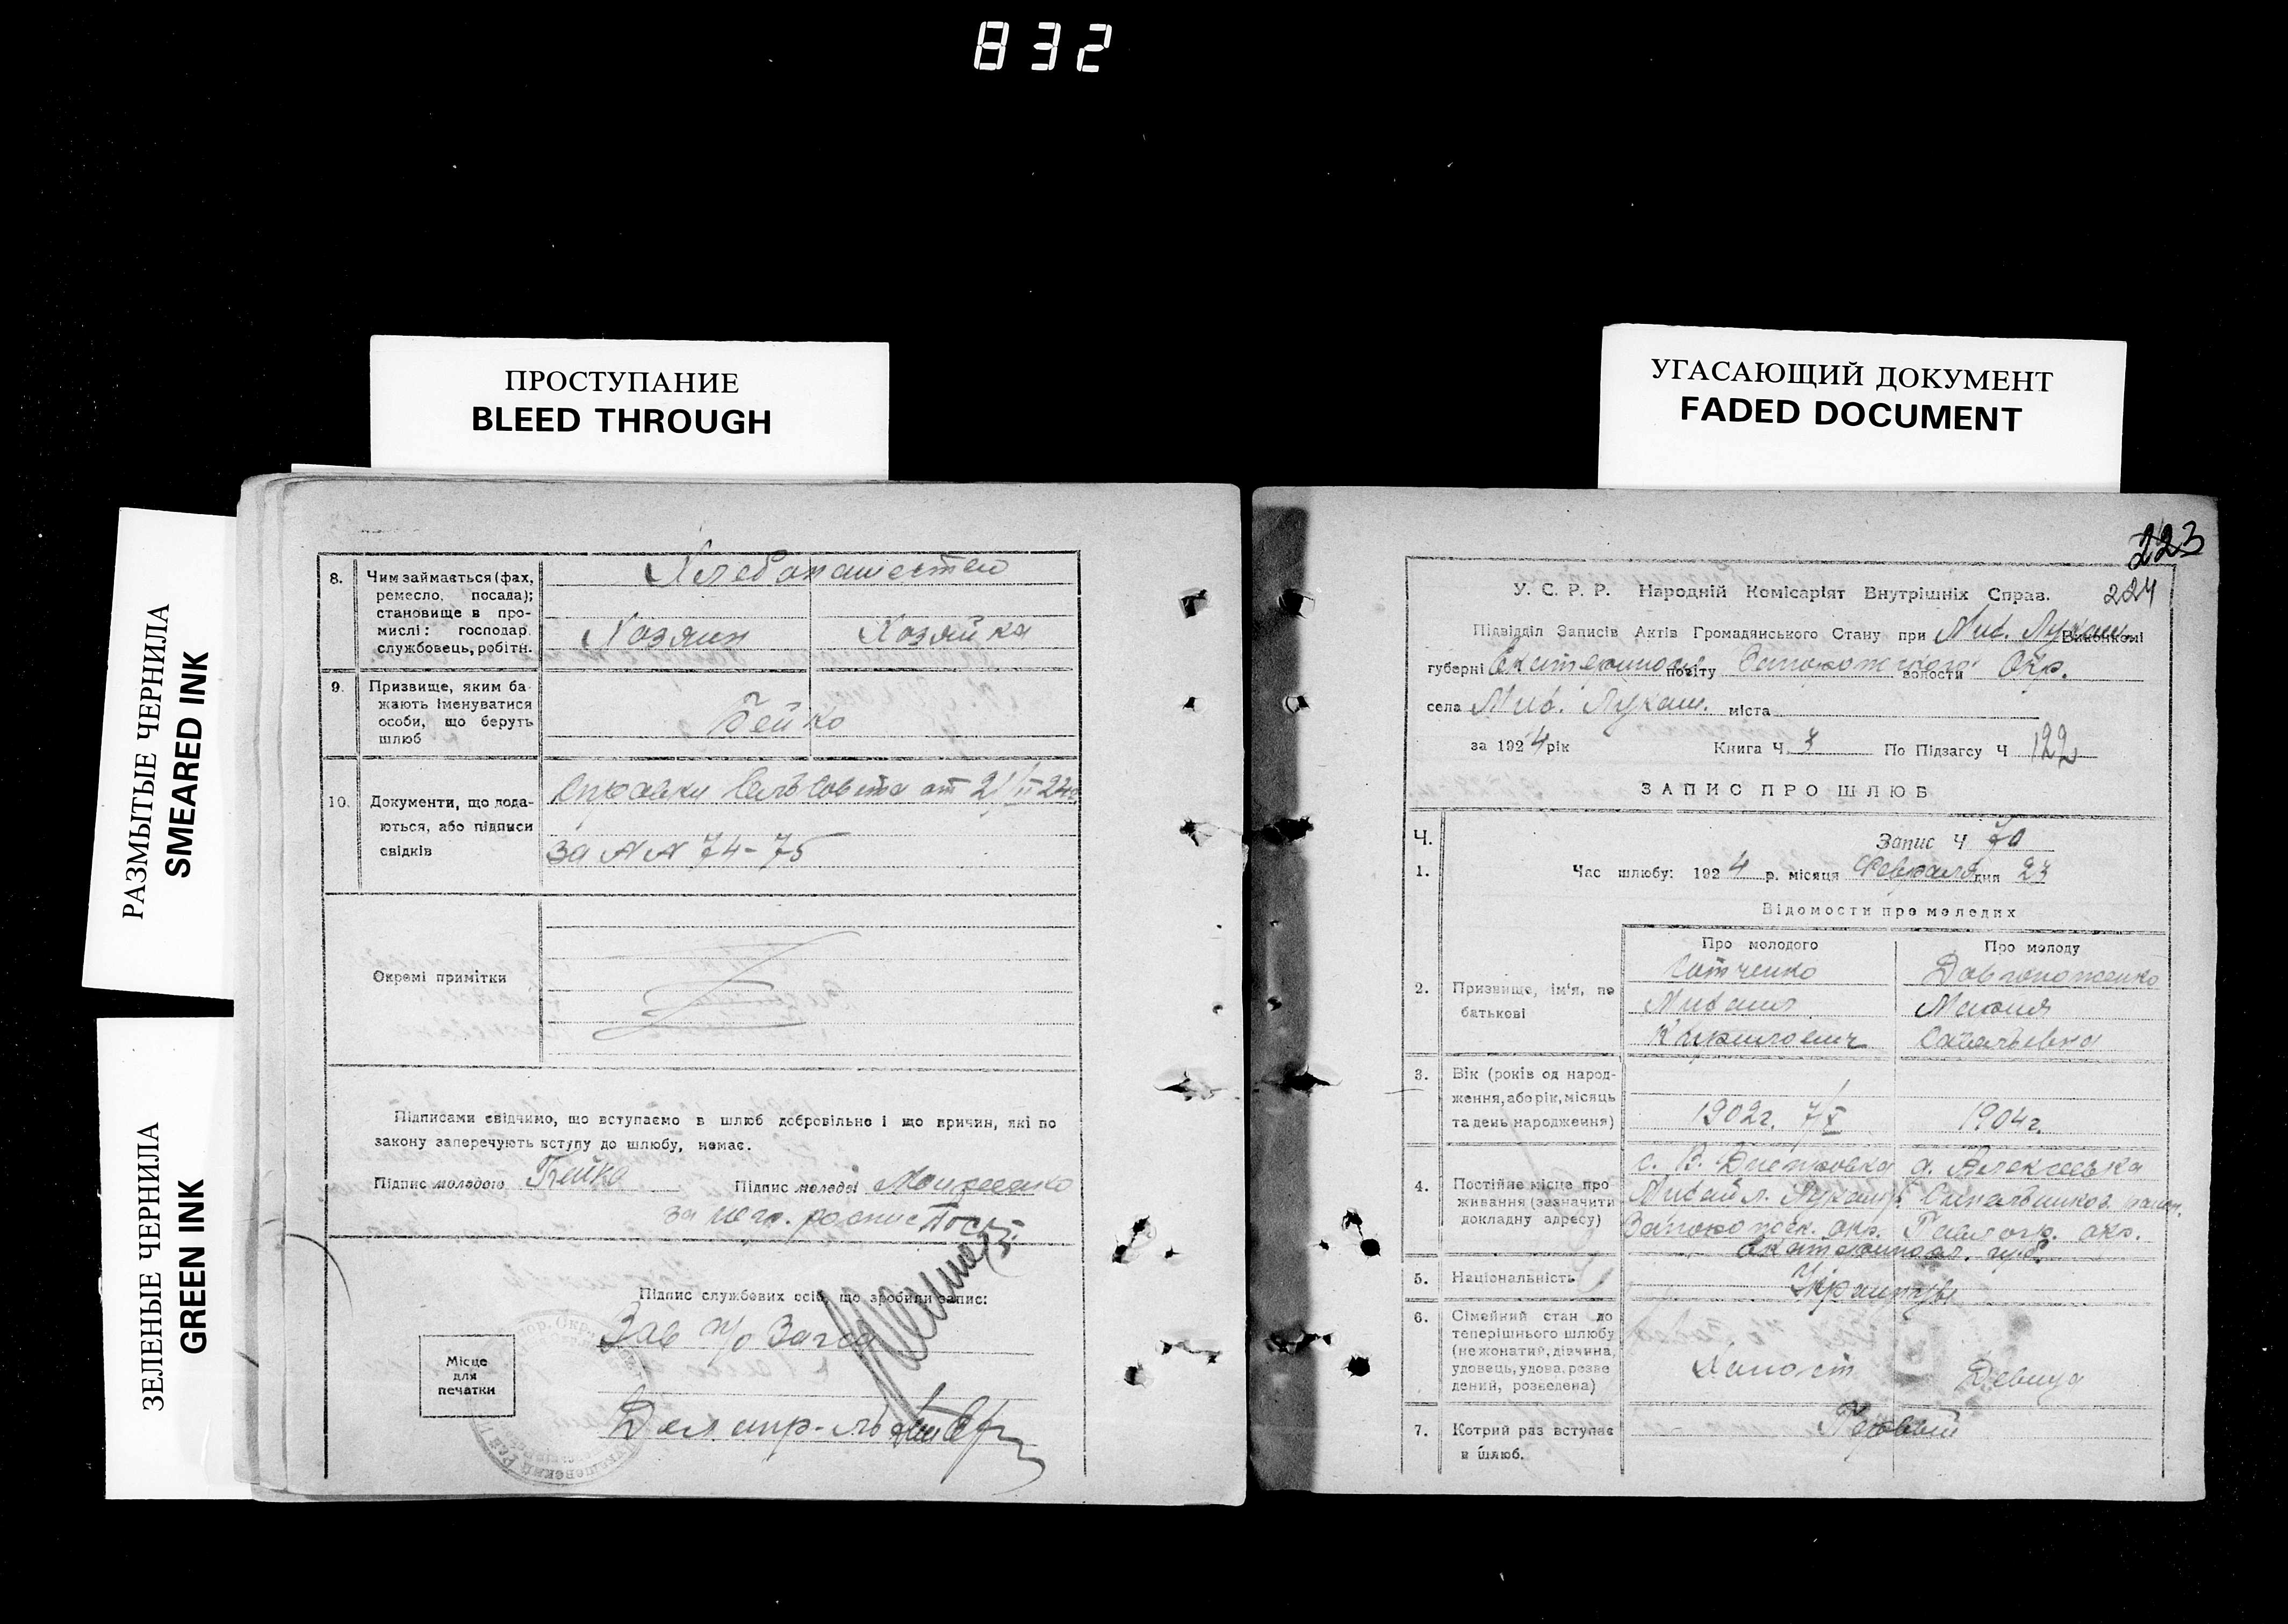 832
ПРОСТУПАНИЕ
BLEED THROUGH
УГАСАЮЩИЙ ДОКУМЕНТ
FADED DOCUMENT
РАЗМЫТЫЕ ЧЕРНИЛА
SMEARED INK
ЗЕЛЕНЫЕ ЧЕРНИЛА
GREEN INK
8. Чим займається (фах,
ремесло, посада);
становище в про-
мислі: господар
службовець, робітн.
Хлебопашеством
Хозяин Хозяйка
9. Призвище, яким ба-
жають іменуватися
особи, що беруть
шлюб
Бейко
10. Документи, що пода-
ються, або підписи
свідків
Справки СельСовета от 21/II 24г.
за NN 74-75
Окремі примітки
Підписами свідчимо, що вступаємо в шлюб добровільно і що причин, які по
закону заперечують вступу до шлюбу, немає.
Підпис молодого Бейко Підпис молодої
за негр. роспис
Підпис службових осіб, що зробили запис:
Зав п/о Загса
Місце
для
печатки
223
224
У. С. Р. Р. Народній Комісаріят Внутрішніх Справ.
Підвідділ Записів Актів Громадянського Стану при Мих. Лукаш. Виконкомі
губерні Екатеринослав повіту Запорожского волости Окр.
села Мих. Лукаш. міста
за 1924 рік Книга Ч. 3 По Підзагсу Ч 122
ЗАПИС ПРО ШЛЮБ
Ч. Запис Ч 70
1. Час шлюбу: 1924 р. місяця Февраля дня 23
Відомости про молодих
Про молодого Про молоду
2. Призвище, ім'я, по
батькові
Сотченко Довгоноженко
Михаил Мария
Кириллович Савельевна
3. Вік (років од народ-
ження, або рік, місяць
та день народження)
1902г. 7/X 1904г.
4. Постійне місце про
живання (зазначити
докладну адресу)
с. В. Днепровка с. Алексеевка
Михайл. Лукаш. р. Синельников. район.
Запорожск. окр. Павлогр. окр.
Екатеринослав. губ.
5. Національність
Украинцы
6. Сімейний стан до
теперішнього шлюбу
(нежонатий, дівчина,
удовець, удова, розве
дений, розведена)
Холост Девица
7. Котрий раз вступає
в шлюб.
Первый